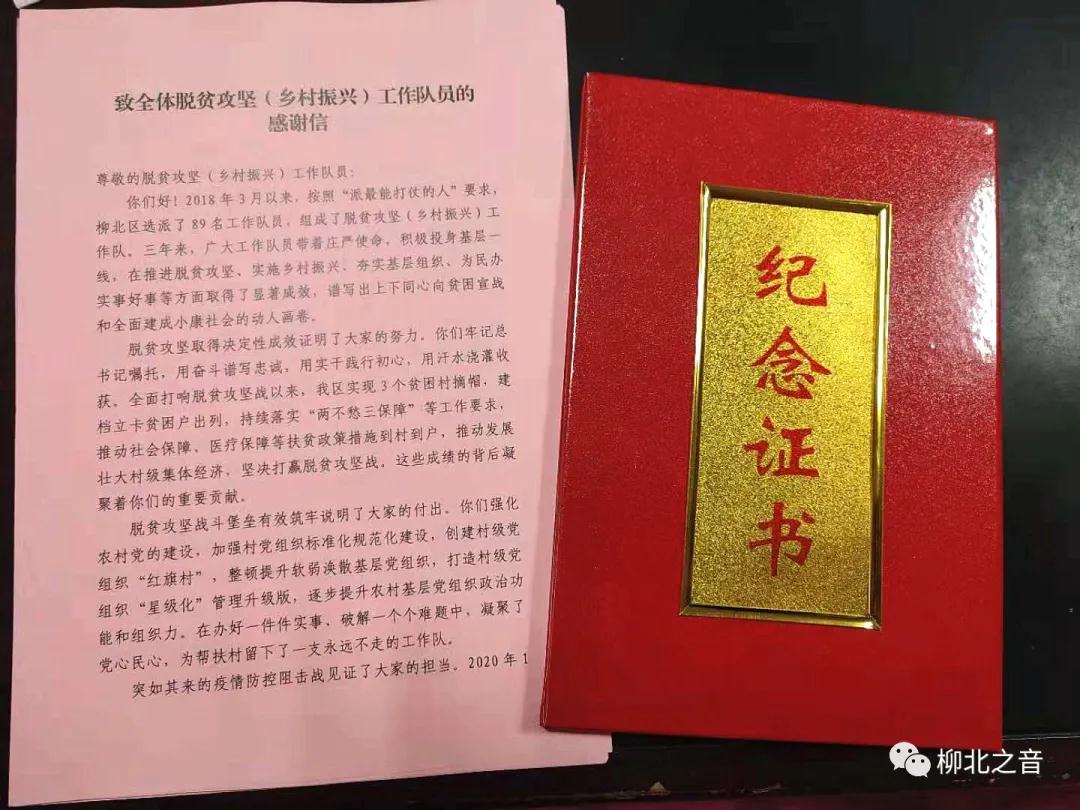 致全体脱贫攻坚（乡村振兴）工作队员的
感谢信
尊敬的脱贫攻坚（乡村振兴）工作队员：
你们好！2018年3月以来，按照“派最能打仗的人”要求，
柳北区选派了89名工作队员，组成了脱贫攻坚（乡村振兴）工
作队。三年来，广大工作队员带着庄严使命，积极投身基层一
线，在推进脱贫攻坚、实施乡村振兴、夯实基层组织、为民办
实事好事等方面取得了显著成效，谱写出上下同心向贫困宣战
和全面建成小康社会的动人画卷。
脱贫攻坚取得决定性成效证明了大家的努力。你们牢记总
书记嘱托，用奋斗谱写忠诚，用实干践行初心，用汗水浇灌收
获。全面打响脱贫攻坚战以来，我区实现3个贫困村摘帽，建
档立卡贫困户出列，持续落实“两不愁三保障”等工作要求，
推动社会保障、医疗保障等扶贫政策措施到村到户，推动发展
壮大村级集体经济，坚决打赢脱贫攻坚战。这些成绩的背后凝
聚着你们的重要贡献。
脱贫攻坚战斗堡垒有效筑牢说明了大家的付出。你们强化
农村党的建设，加强村党组织标准化规范化建设，创建村级党
组织“红旗村”，整顿提升软弱涣散基层党组织，打造村级党
组织“星级化”管理升级版，逐步提升农村基层党组织政治功
能和组织力。在办好一件件实事、破解一个个难题中，凝聚了
党心民心，为帮扶村留下了一支永远不走的工作队。
突如其来的疫情防控阻击战见证了大家的担当。2020年1
纪念证书
柳北之音